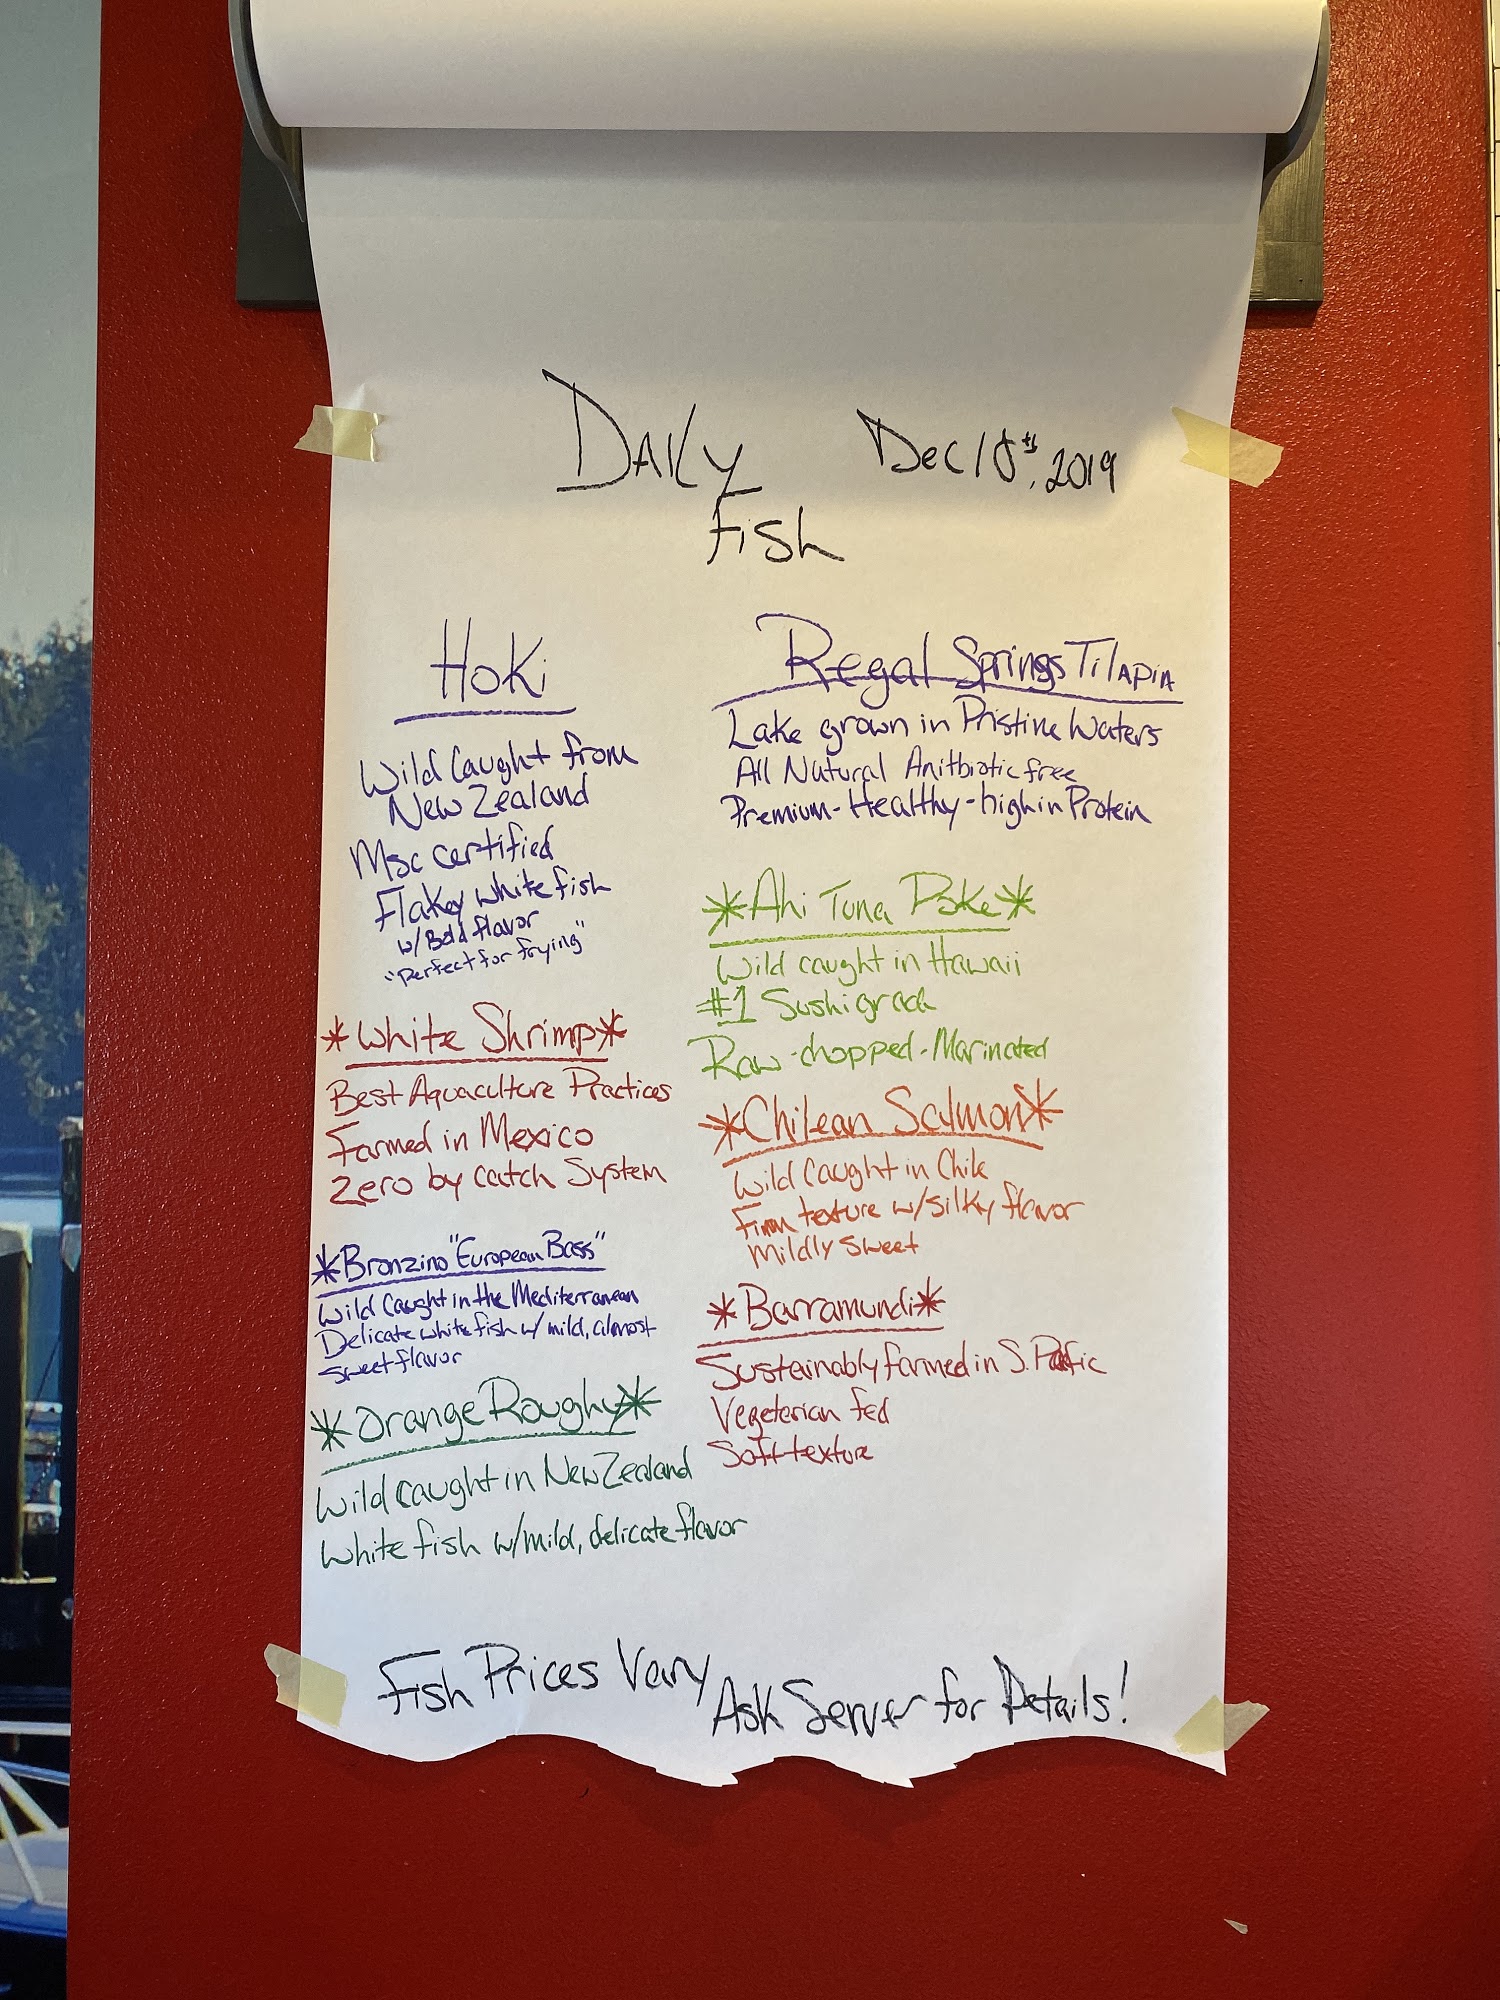 Daily
Fish
Dec 10th, 2019
Hoki
Wild Caught from
New Zealand
Msc certified
Flakey white fish
w/ Bold flavor
"Perfect for frying"
*White Shrimp*
Best Aquaculture Practices
Farmed in Mexico
Zero by catch System
*Bronzino "European Bass"
Wild Caught in the Mediterranean
Delicate white fish w/ mild, almost
sweet flavor
*Orange Roughy*
Wild caught in New Zealand
White fish w/mild, delicate flavor
Regal Springs Tilapia
Lake grown in Pristine Waters
All Natural Anitbiotic free
Premium-Healthy-high in Protein
*Ahi Tuna Poke*
Wild caught in Hawaii
#1 Sushi grade
Raw-chopped-Marinated
*Chilean Salmon*
Wild Caught in Chile
Firm texture w/silky flavor
Mildly Sweet
*Barramundi*
Sustainably farmed in S.
Vegeterian fed
Soft texture
Fish Prices Vary
Ask Server for Details!